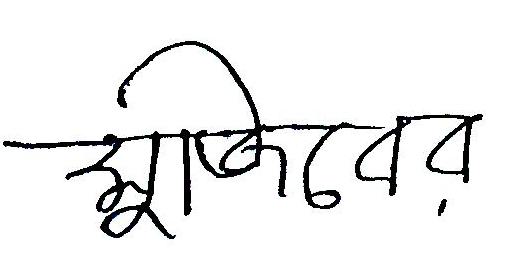 মুজিবের